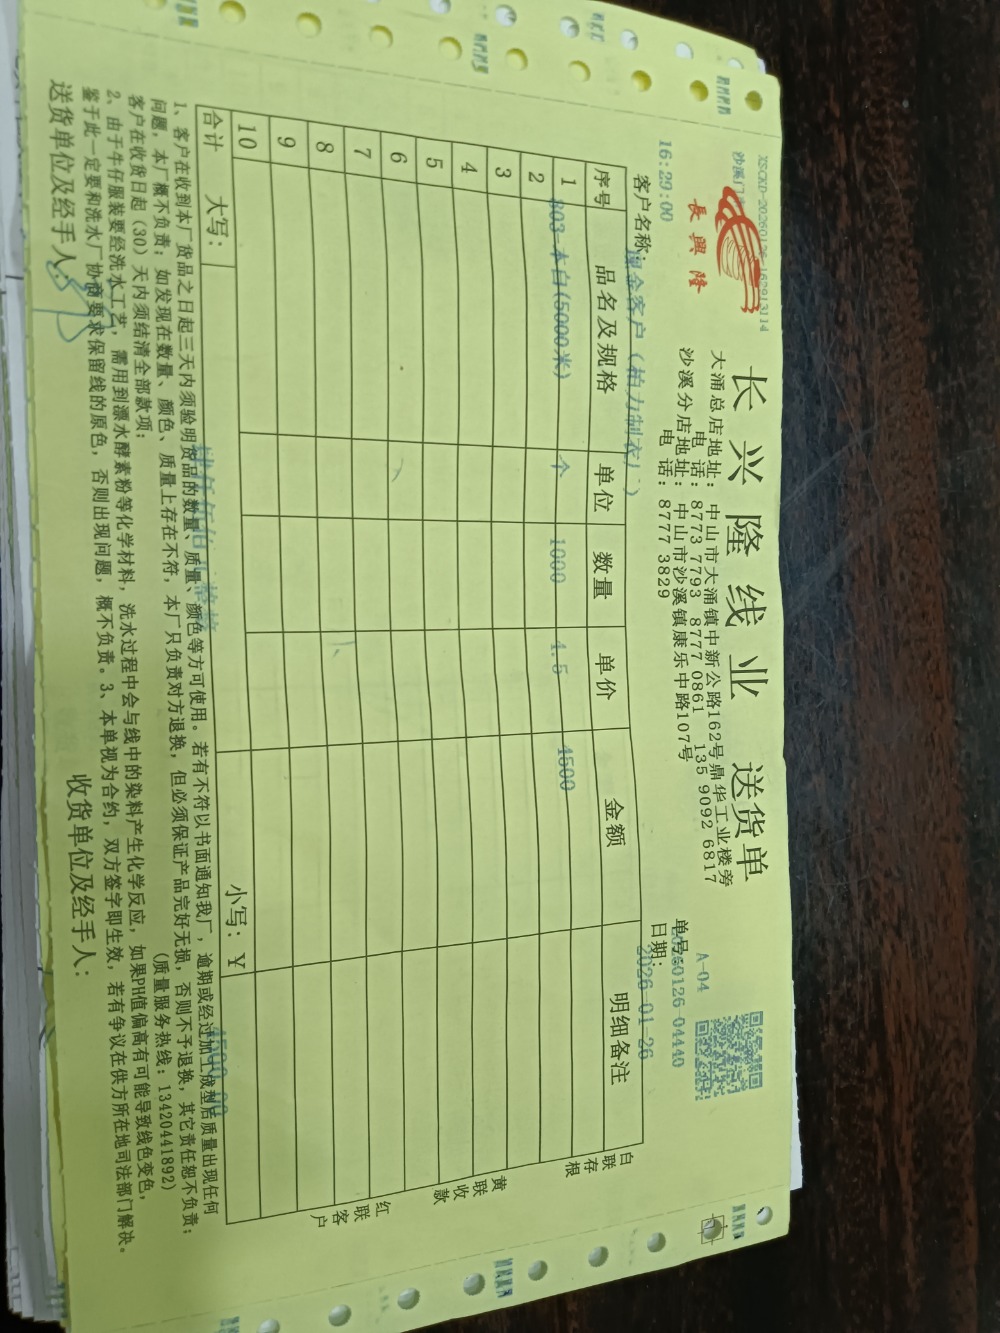 XSCKD-20260126-162913114
沙溪门
長興隆
长兴隆线业 送货单
大涌总店地址：中山市大涌镇中新公路162号鼎华工业楼旁
电 话：8773 7793 8777 0861 135 9092 6817
沙溪分店地址：中山市沙溪镇康乐中路107号
电 话：8777 3829
A-04
单号：20260126-04440
日期：2026-01-26
16:29:00
客户名称：现金客户（柏力制衣厂）
序号 品名及规格 单位 数量 单价 金额 明细备注
1 803-本白(5000米) 个 1000 4.5 4500
2
3
4
5
6
7
8
9
10
合计 大写：肆仟伍佰元整 小写：¥ 4500.00
白联存根
黄联收款
红联客户
1、客户在收到本厂货品之日起三天内须验明货品的数量、质量、颜色等方可使用。若有不符以书面通知我厂，逾期或经过加工成型后质量出现任何
问题，本厂概不负责；如发现在数量、颜色、质量上存在不符，本厂只负责对方退换，但必须保证产品完好无损，否则不予退换，其它责任恕不负责；
客户在收货日起（30）天内须结清全部款项； （质量服务热线：13420441892）
2、由于牛仔服装要经洗水工艺，需用到漂水酵素粉等化学材料，洗水过程中会与线中的染料产生化学反应，如果PH值偏高有可能导致线色变色，
鉴于此一定要和洗水厂协商要求保留线的原色，否则出现问题，概不负责。3、本单视为合约，双方签字即生效，若有争议在供方所在地司法部门解决。
送货单位及经手人： 收货单位及经手人：